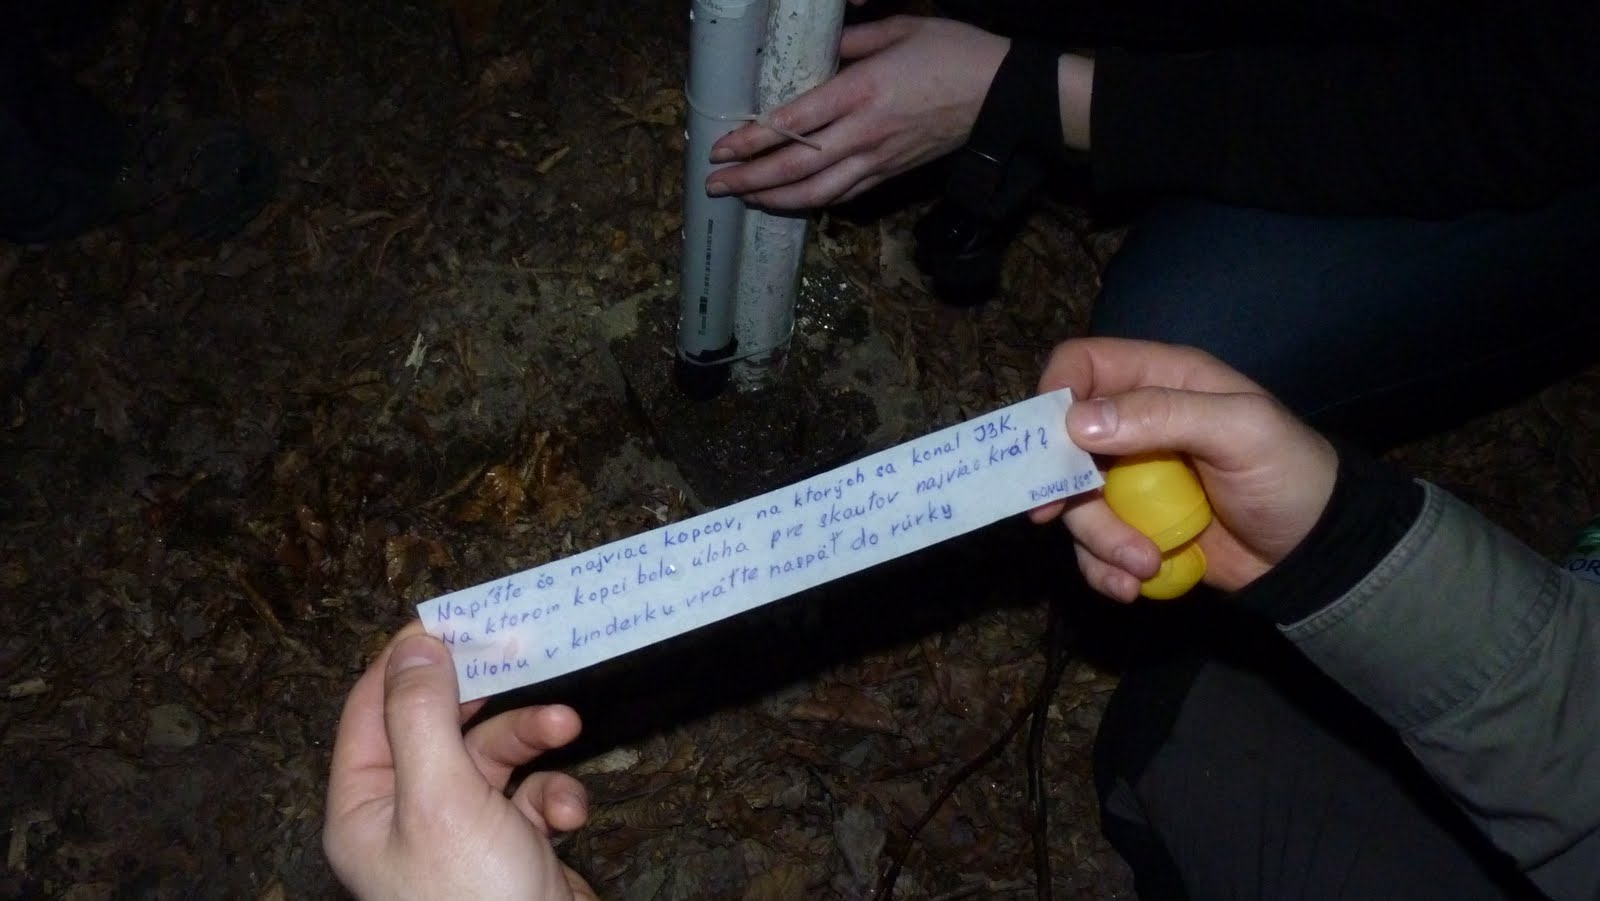 Napíšte čo najviac kopcov, na ktorých sa konal J3K.
Na ktorom kopci bola úloha pre skautov najviac krát?
Úlohu v kinderku vráťte naspäť do rúrky
BONUS